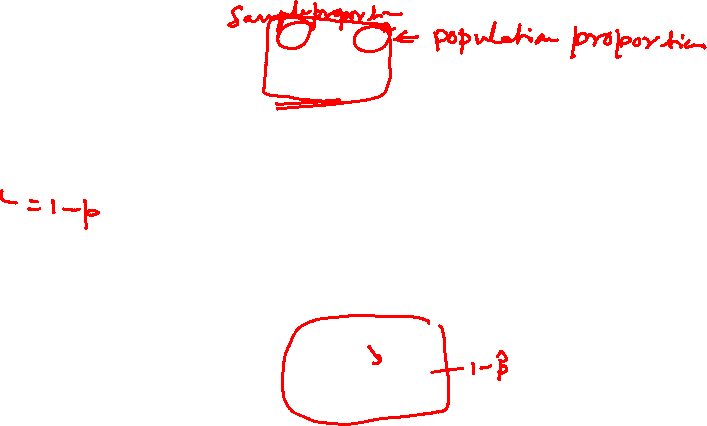 Sample proportion
← population proportion
= 1 - p
1 - p̂